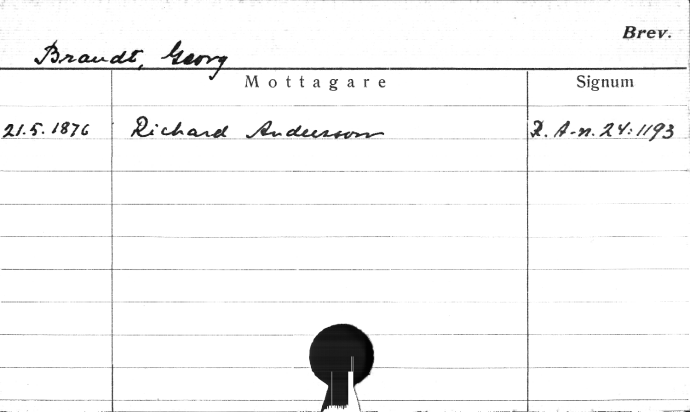 Brev.
Brandt, Georg
Mottagare Signum
21.5.1876 Richard Andersson R. A-n. 24:1193